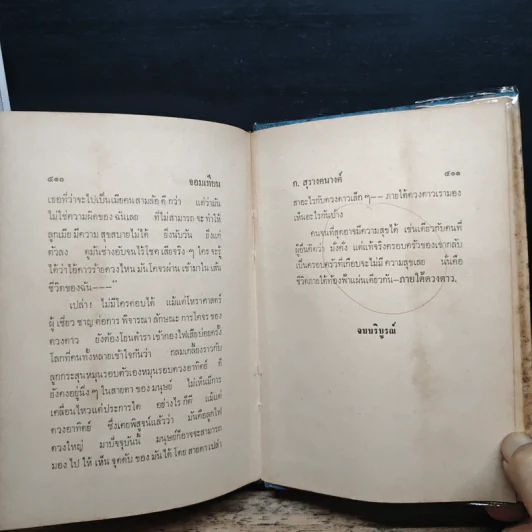 ๔๑๐ จอมเทียน
เธอที่ว่าจะไปเป็นเมียคนสามล้อ ดี กว่า แต่ว่ามัน
ไม่ใช่ความผิดของ ฉันเลย ที่ไม่สามารถ จะ ทำให้
ลูกเมีย มีความ สุขสบายไม่ได้ ยิ่งนับวัน ยิ่งแก่
ตัวลง ดูมันช่างอับจนไร้โชค เสียจริง ๆ ใคร จะรู้
ได้ว่าไอ้ดาวร้ายดวงไหน มันโคจรผ่าน เข้ามาใน เส้น
ชีวิตของฉัน———"
เปล่า! ไม่มีใครตอบได้ แม้แต่โหราศาสตร์
ผู้ เชี่ยว ชาญ ต่อการ พิจารณา ลักษณะ การโคจร ของ
ดวงดาว ยังต้องโยนตำรา เข้ากองไฟเสียบ่อยครั้ง
โลกที่คนทั้งหลายเข้าใจกันว่า กลมเกลี้ยงราวกับ
ลูกกระสุนหมุนรอบตัวเองหมุนรอบดวงอาทิตย์ ก็
ยังคงอยู่นิ่ง ๆ ในสายตา ของ มนุษย์ ไม่เห็นมีการ
เคลื่อนไหวแต่ประการใด อย่างไร ก็ดี แม้แต่
ดวงอาทิตย์ ซึ่งเคยพิสูจน์แล้วว่า มันคือลูกไฟ
ดวงใหญ่ มาปัจจุบันนี้ มนุษย์ก็อาจจะสามารถ
มอง ไป ให้ เห็น จุดดับ ของ มันได้ โดย สายตา เปล่า
ก. สุรางคนางค์ ๔๑๑
สาอะไรกับดวงดาวเล็ก ๆ—— ภายใต้ดวงดาวเรามอง
เห็นอะไรกันบ้าง
คนจนที่สุดอาจมีความสุขได้ เช่นเดียวกับคนที่
ผู้อื่นคิดว่า มั่งคั่ง แต่แท้จริงครอบครัวของเขากลับ
เป็นครอบครัวที่เกือบจะไม่มี ความสุขเลย นั่นคือ
ชีวิตภายใต้ท้องฟ้าแผ่นเดียวกัน—ภายใต้ดวงดาว.
จบบริบูรณ์